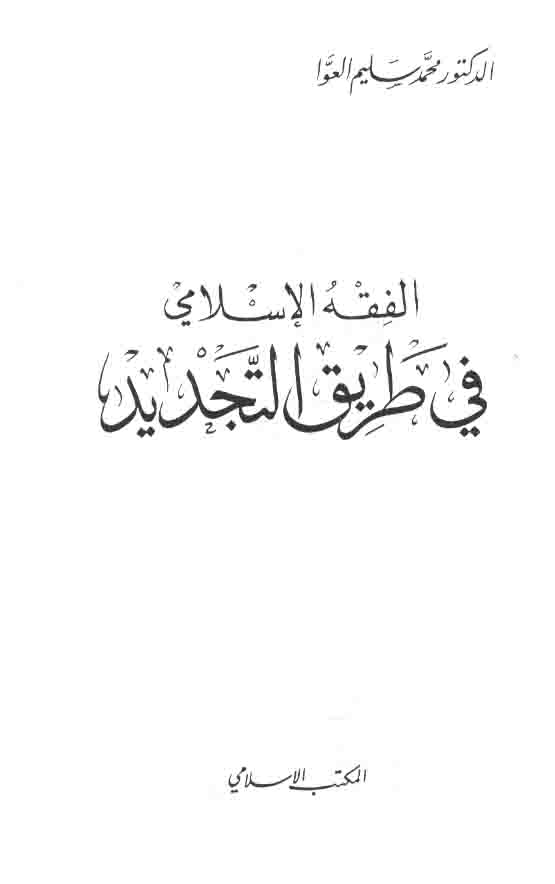 الدكتور محمَّد سَليم العوَّا
الفِقْهُ الإِسْلامي
في طَرِيقِ التَّجْدِيدِ
المكتب الإسلامي